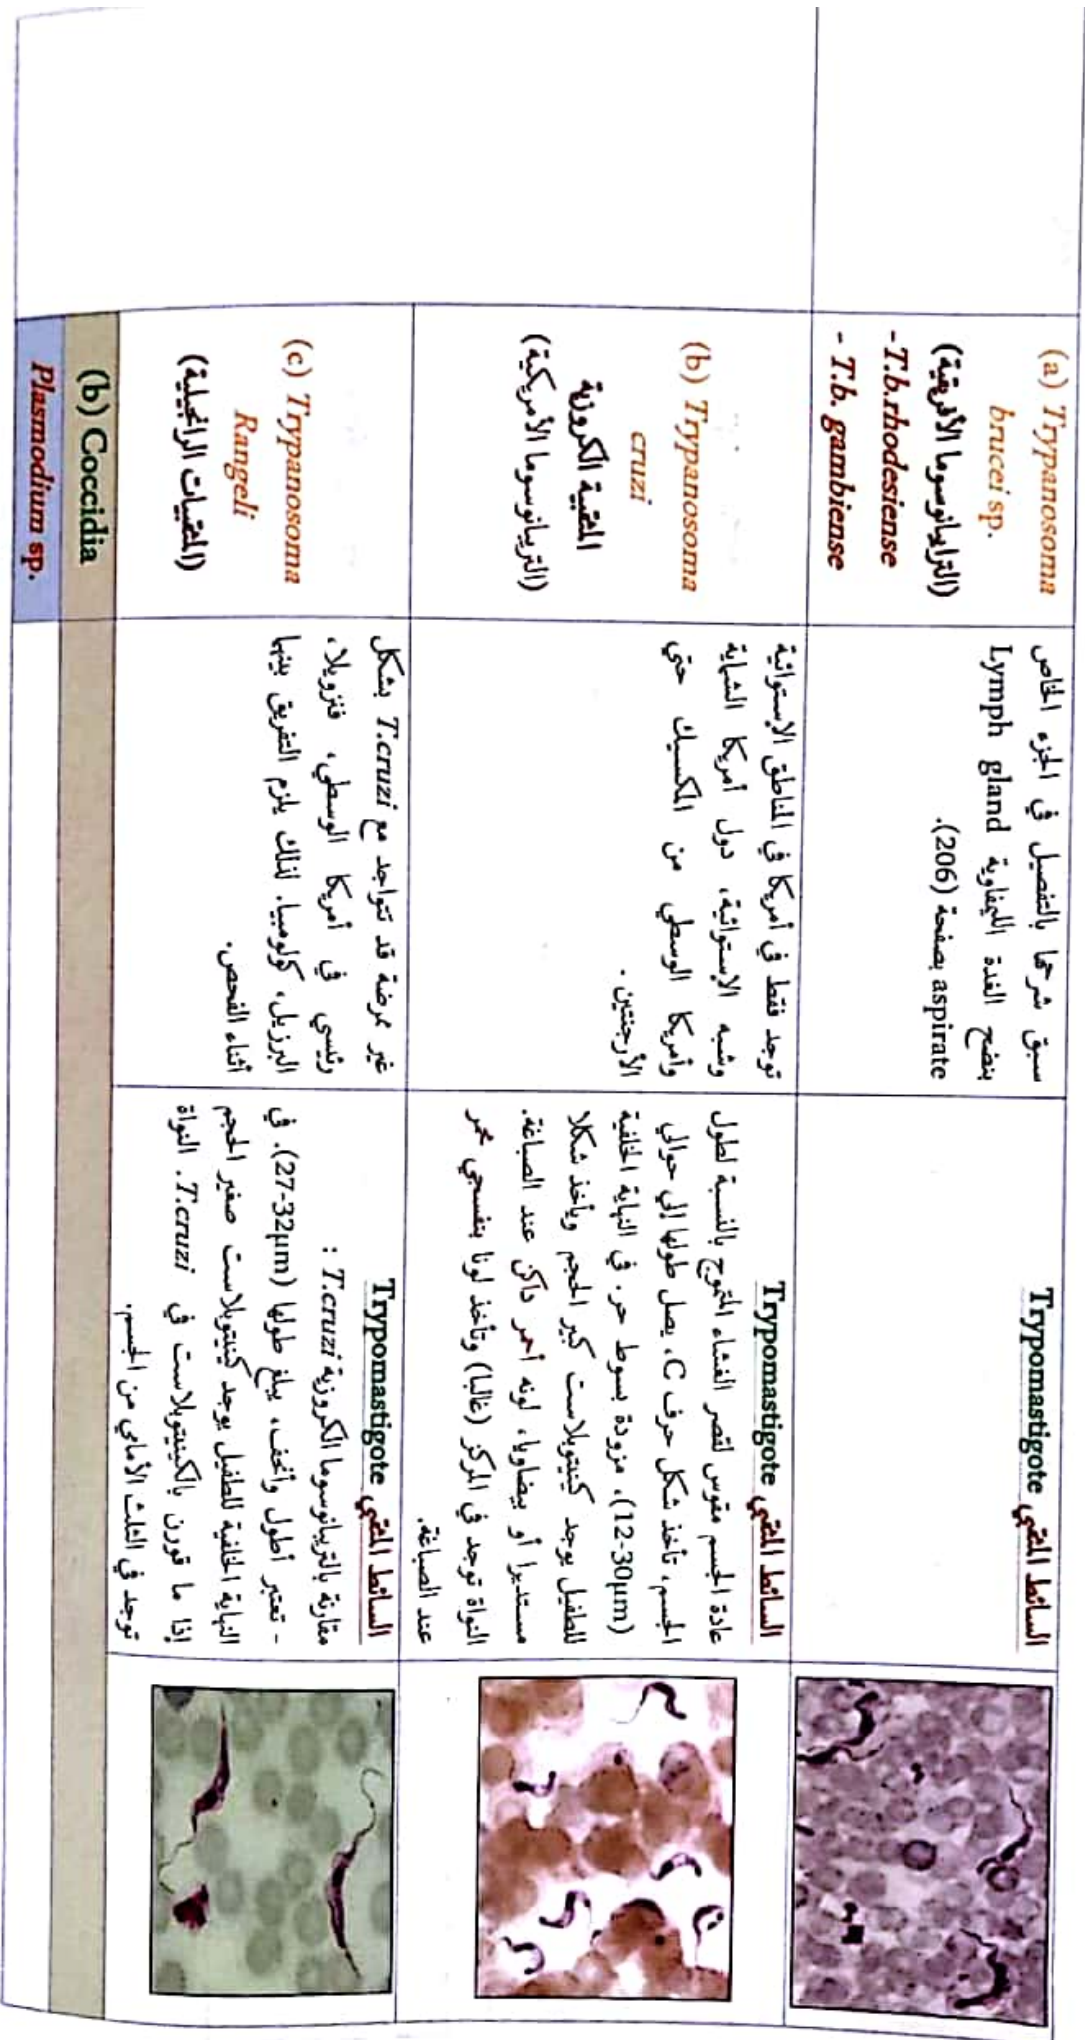 (a) Trypanosoma
brucei sp.
(الترايبانوسوما الأفريقية)
-T.b.rhodesiense
- T.b. gambiense
سبق شرحها بالتفصيل في الجزء الخاص
بنضح الغدة الليمفاوية Lymph gland
aspirate بصفحة (206).
السائط المثقبي Trypomastigote
(b) Trypanosoma
cruzi
المثقبية الكروزية
(التريبانوسوما الأمريكية)
توجد فقط في أمريكا في المناطق الإستوائية
وشبه الإستوائية، دول أمريكا الشمالية
وأمريكا الوسطي من المكسيك حتي
الأرجنتين.
السائط المثقبي Trypomastigote
عادة الجسم مقوس لقصر الغشاء المتموج بالنسبة لطول
الجسم، تأخذ شكل حرف C، يصل طولها إلي حوالي
(12-30µm)، مزودة بسوط حر. في النهاية الخلفية
للطفيل يوجد كينيتوبلاست كبير الحجم ويأخذ شكلا
مستديرا أو بيضاويا، لونه أحمر داكن عند الصباغة.
النواة توجد في المركز (غالبا) وتأخذ لونا بنفسجي محمر
عند الصباغة.
(c) Trypanosoma
Rangeli
(المثقبيات الرانجيلية)
غير ممرضة قد تتواجد مع T.cruzi بشكل
رئيسي في أمريكا الوسطي، فنزويلا،
البرزيل، كولومبيا. لذلك يلزم التفريق بينهما
أثناء الفحص.
السائط المثقبي Trypomastigote
مقارنة بالتريبانوسوما الكروزية T.cruzi :
- تعتبر أطول وأنحف، يبلغ طولها (27-32µm). في
النهاية الخلفية للطفيل يوجد كينيتوبلاست صغير الحجم
إذا ما قورن بالكينيتوبلاست في T.cruzi. النواة
توجد في الثلث الأمامي من الجسم.
(b) Coccidia
Plasmodium sp.